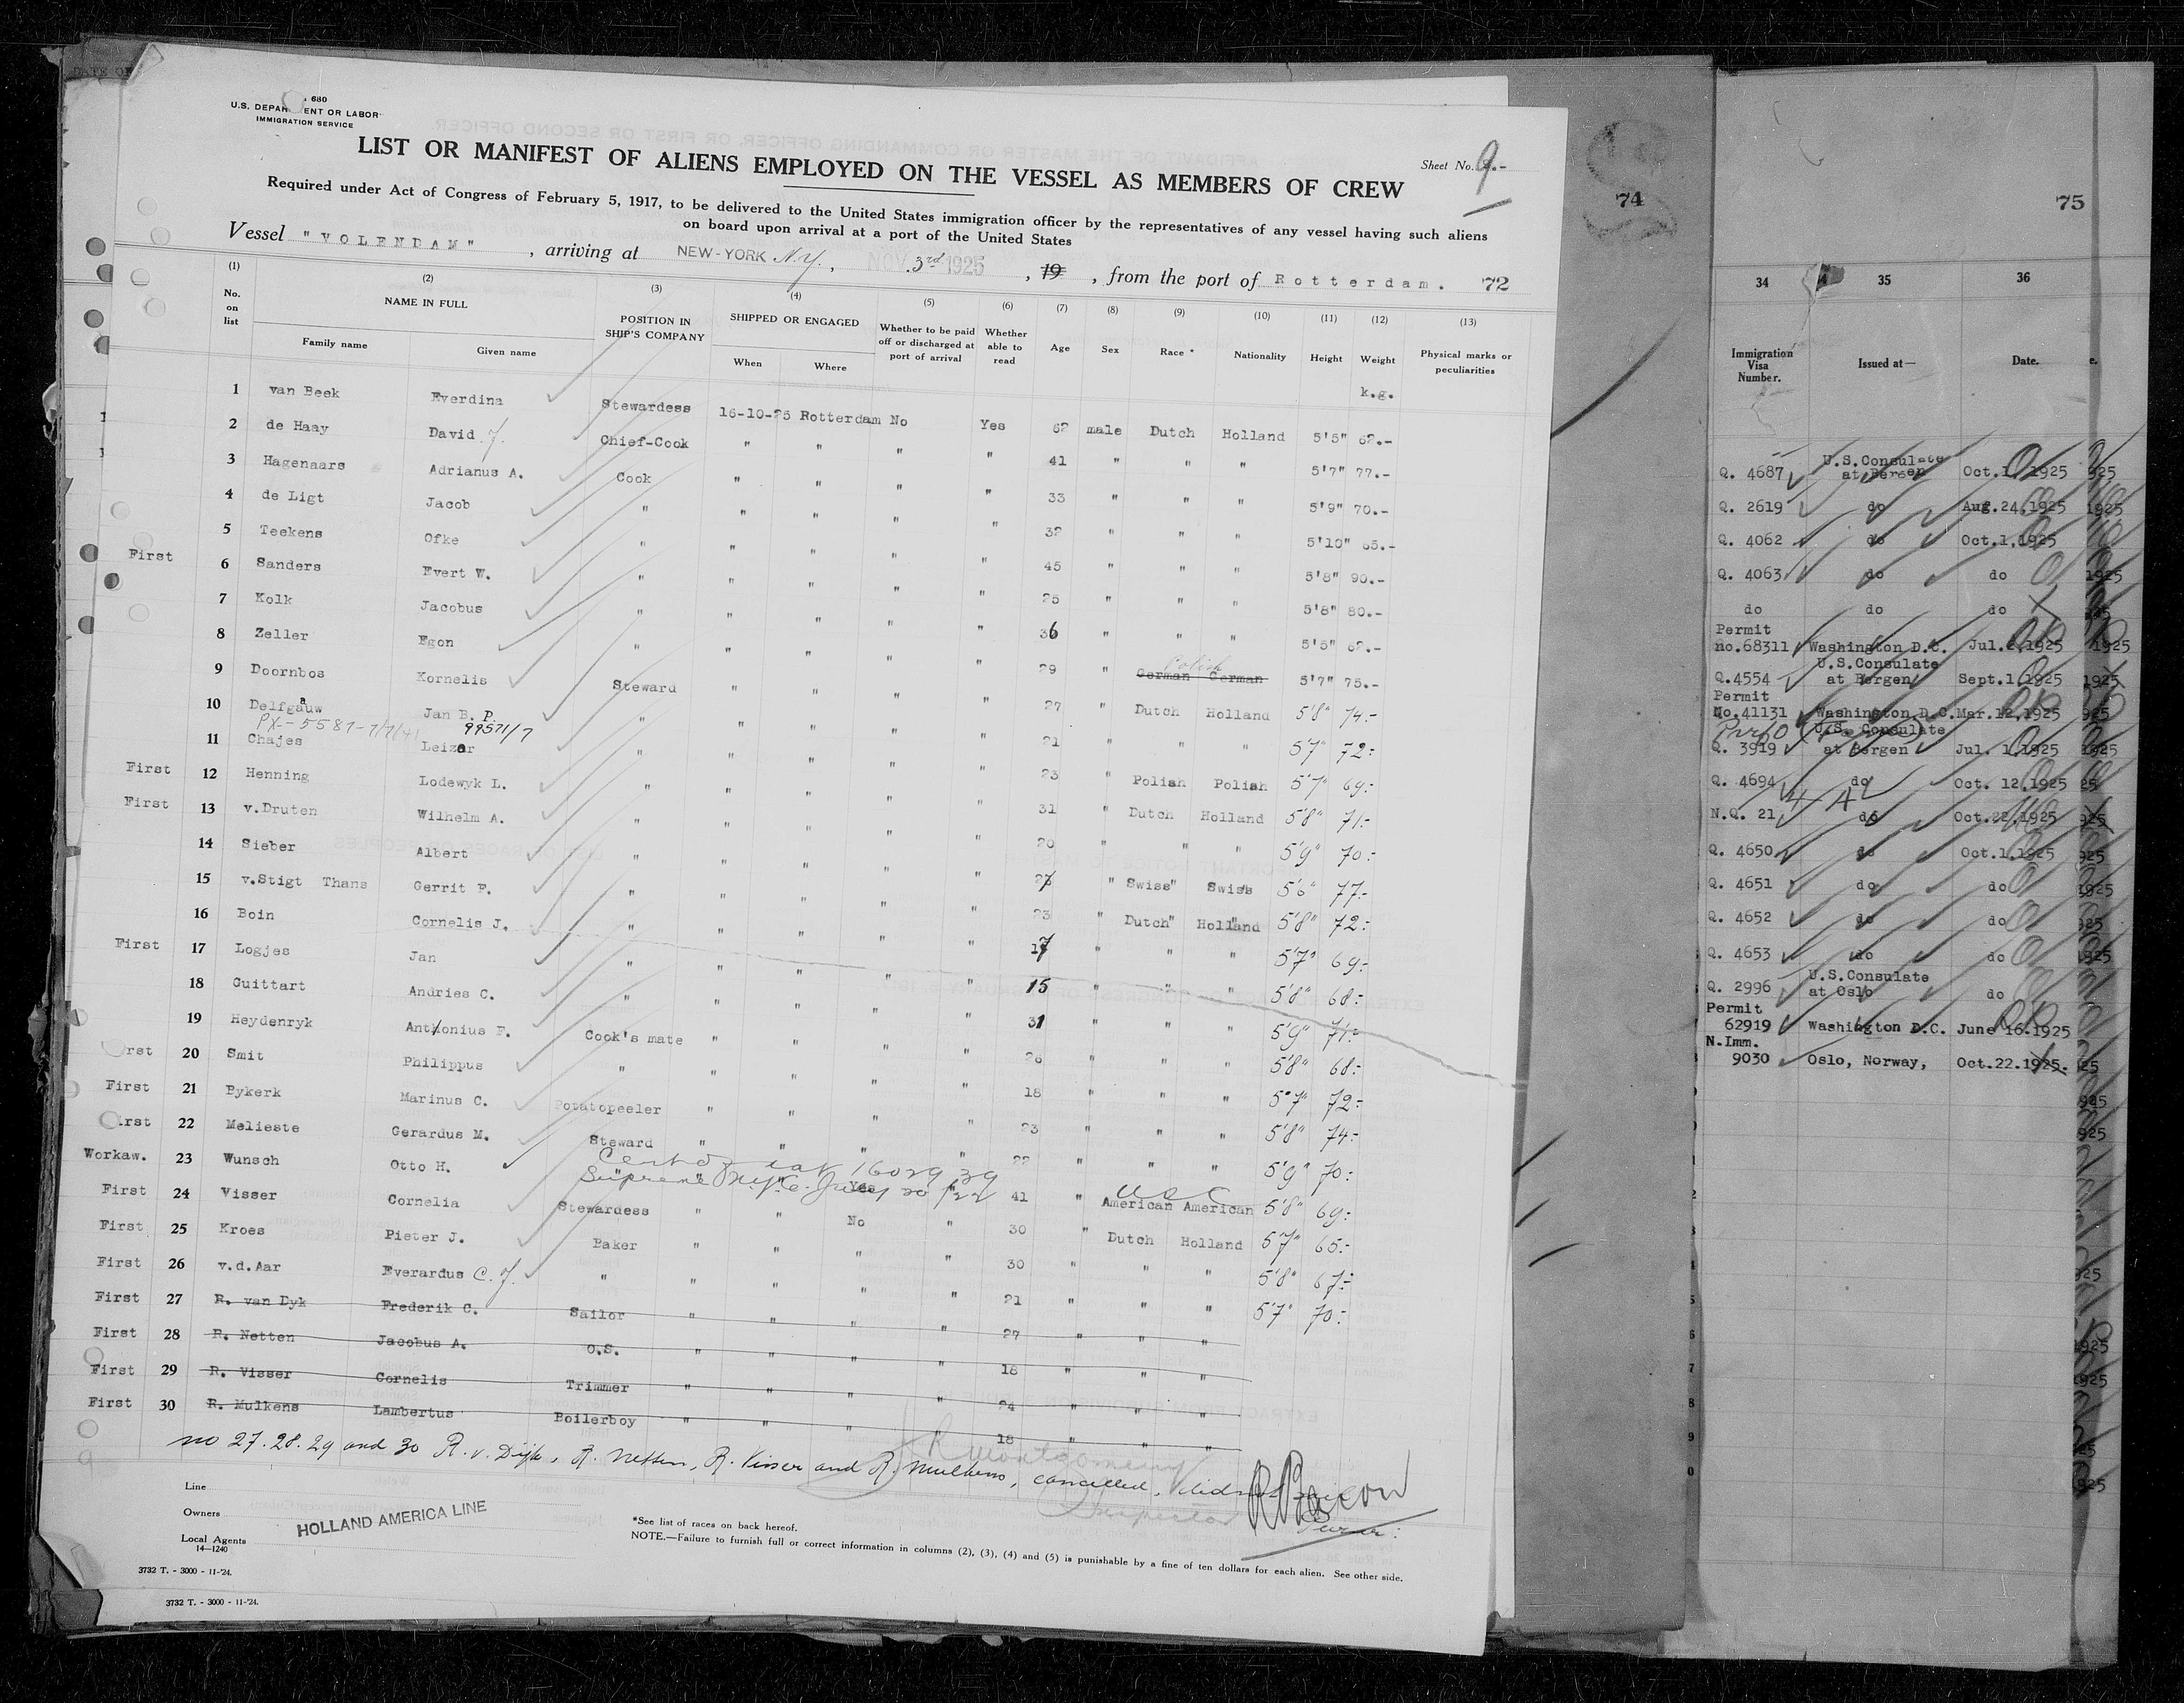 680
U.S. DEPAR ENT OR LABOR
IMMIGRATION SERVICE
LIST OR MANIFEST OF ALIENS EMPLOYED ON THE VESSEL AS MEMBERS OF CREW
Sheet No. 9.-
Required under Act of Congress of February 5, 1917, to be delivered to the United States immigration officer by the representatives of any vessel having such aliens
on board upon arrival at a port of the United States
Vessel "VOLENDAM", arriving at NEW-YORK N.Y., NOV 3rd 1925, 19 , from the port of Rotterdam. 72
(1) (2) (3) (4) (5) (6) (7) (8) (9) (10) (11) (12) (13)
No. on list NAME IN FULL POSITION IN SHIP'S COMPANY SHIPPED OR ENGAGED Whether to be paid off or discharged at port of arrival Whether able to read Age Sex Race * Nationality Height Weight Physical marks or peculiarities
Family name Given name When Where
k.g.
1 van Beek Everdina Stewardess 16-10-25 Rotterdam No Yes 62 male Dutch Holland 5'5" 62.-
2 de Haay David J. Chief-Cook " " " " 41 " " " 5'7" 77.-
3 Hagenaars Adrianus A. Cook " " " " 33 " " " 5'9" 70.-
4 de Ligt Jacob " " " " " 32 " " " 5'10" 65.-
5 Teekens Ofke " " " " " 45 " " " 5'8" 90.-
First 6 Sanders Evert W. " " " " " 25 " " " 5'8" 80.-
7 Kolk Jacobus " " " " " 36 " " " 5'5" 62.-
8 Zeller Egon " " " " " 29 " German German Polish 5'7" 75.-
9 Doornbos Kornelis Steward " " " " 27 " Dutch Holland 5'8" 74:-
10 Delfgaauw Jan B. P. " " " " " 21 " " " 5'7" 72:-
PX-5587-7/7/41 99571/7
11 Chajes Leizer " " " " " 23 " Polish Polish 5'7" 69:-
First 12 Henning Lodewyk L. " " " " " 31 " Dutch Holland 5'8" 71:-
First 13 v.Druten Wilhelm A. " " " " " 20 " " " 5'9" 70:-
14 Sieber Albert " " " " " 27 " Swiss" Swiss 5'6" 77:-
15 v.Stigt Thans Gerrit F. " " " " " 23 " Dutch" Holland 5'8" 72:-
16 Boin Cornelis J. " " " " " 17 " " " 5'7" 69:-
First 17 Logjes Jan " " " " " 15 " " " 5'8" 68:-
18 Guittart Andries C. " " " " " 31 " " " 5'9" 71:-
19 Heydenryk Anthonius F. Cook's mate " " " " 26 " " " 5'8" 68:-
rst 20 Smit Philippus " " " " " 18 " " " 5'7" 72:-
First 21 Bykerk Marinus C. Potatopeeler " " " " 23 " " " 5'8" 74:-
irst 22 Melieste Gerardus M. Steward " " " " 22 " " " 5'9" 70:-
Workaw. 23 Wunsch Otto H. " " " Yes " 41 " American American 5'8" 69:-
First 24 Visser Cornelia Stewardess " " No " 30 " Dutch Holland 5'7" 65:-
First 25 Kroes Pieter J. Baker " " " " 30 " " " 5'8" 67:-
First 26 v.d.Aar Everardus C. J. " " " " " 21 " " " 5'7" 70:-
First 27 R. van Dyk Frederik C. Sailor " " " " 27 " " "
First 28 R. Netten Jacobus A. O.S. " " " " 18 " " "
First 29 R. Visser Cornelis Trimmer " " " " 24 " " "
First 30 R. Mulkens Lambertus Boilerboy " " " " 18 " " "
no 27. 28. 29 and 30 R. v. Dijk, R. Netten, R. Visser and R. Mulkens, cancelled, did not sail
Montgomery
Inspector
Purser:
Line
Owners HOLLAND AMERICA LINE
Local Agents
14—1240
*See list of races on back hereof.
NOTE.—Failure to furnish full or correct information in columns (2), (3), (4) and (5) is punishable by a fine of ten dollars for each alien. See other side.
3732 T. - 3000 - 11-'24.
3732 T. - 3000 - 11-'24.
74
75
34 35 36
Immigration Visa Number. Issued at— Date.
Q. 4687 U.S.Consulate at Bergen Oct.1,1925
Q. 2619 do Aug.24,1925
Q. 4062 do Oct.1,1925
Q. 4063 do do
do do do
Permit no.68311 Washington D.C. Jul.2,1925
Q.4554 U.S.Consulate at Bergen Sept.1,1925
Permit No.41131 Washington D.C. Mar.12,1925
Q. 3919 U.S. Consulate at Bergen Jul. 1,1925
Q. 4694 do Oct. 12,1925
N.Q. 21 do Oct.22,1925
Q. 4650 do Oct.1,1925
Q. 4651 do do
Q. 4652 do do
Q. 4653 do do
Q. 2996 U.S.Consulate at Oslo do
Permit 62919 Washington D.C. June 16.1925
N.Imm. 9030 Oslo, Norway, Oct.22.1925.